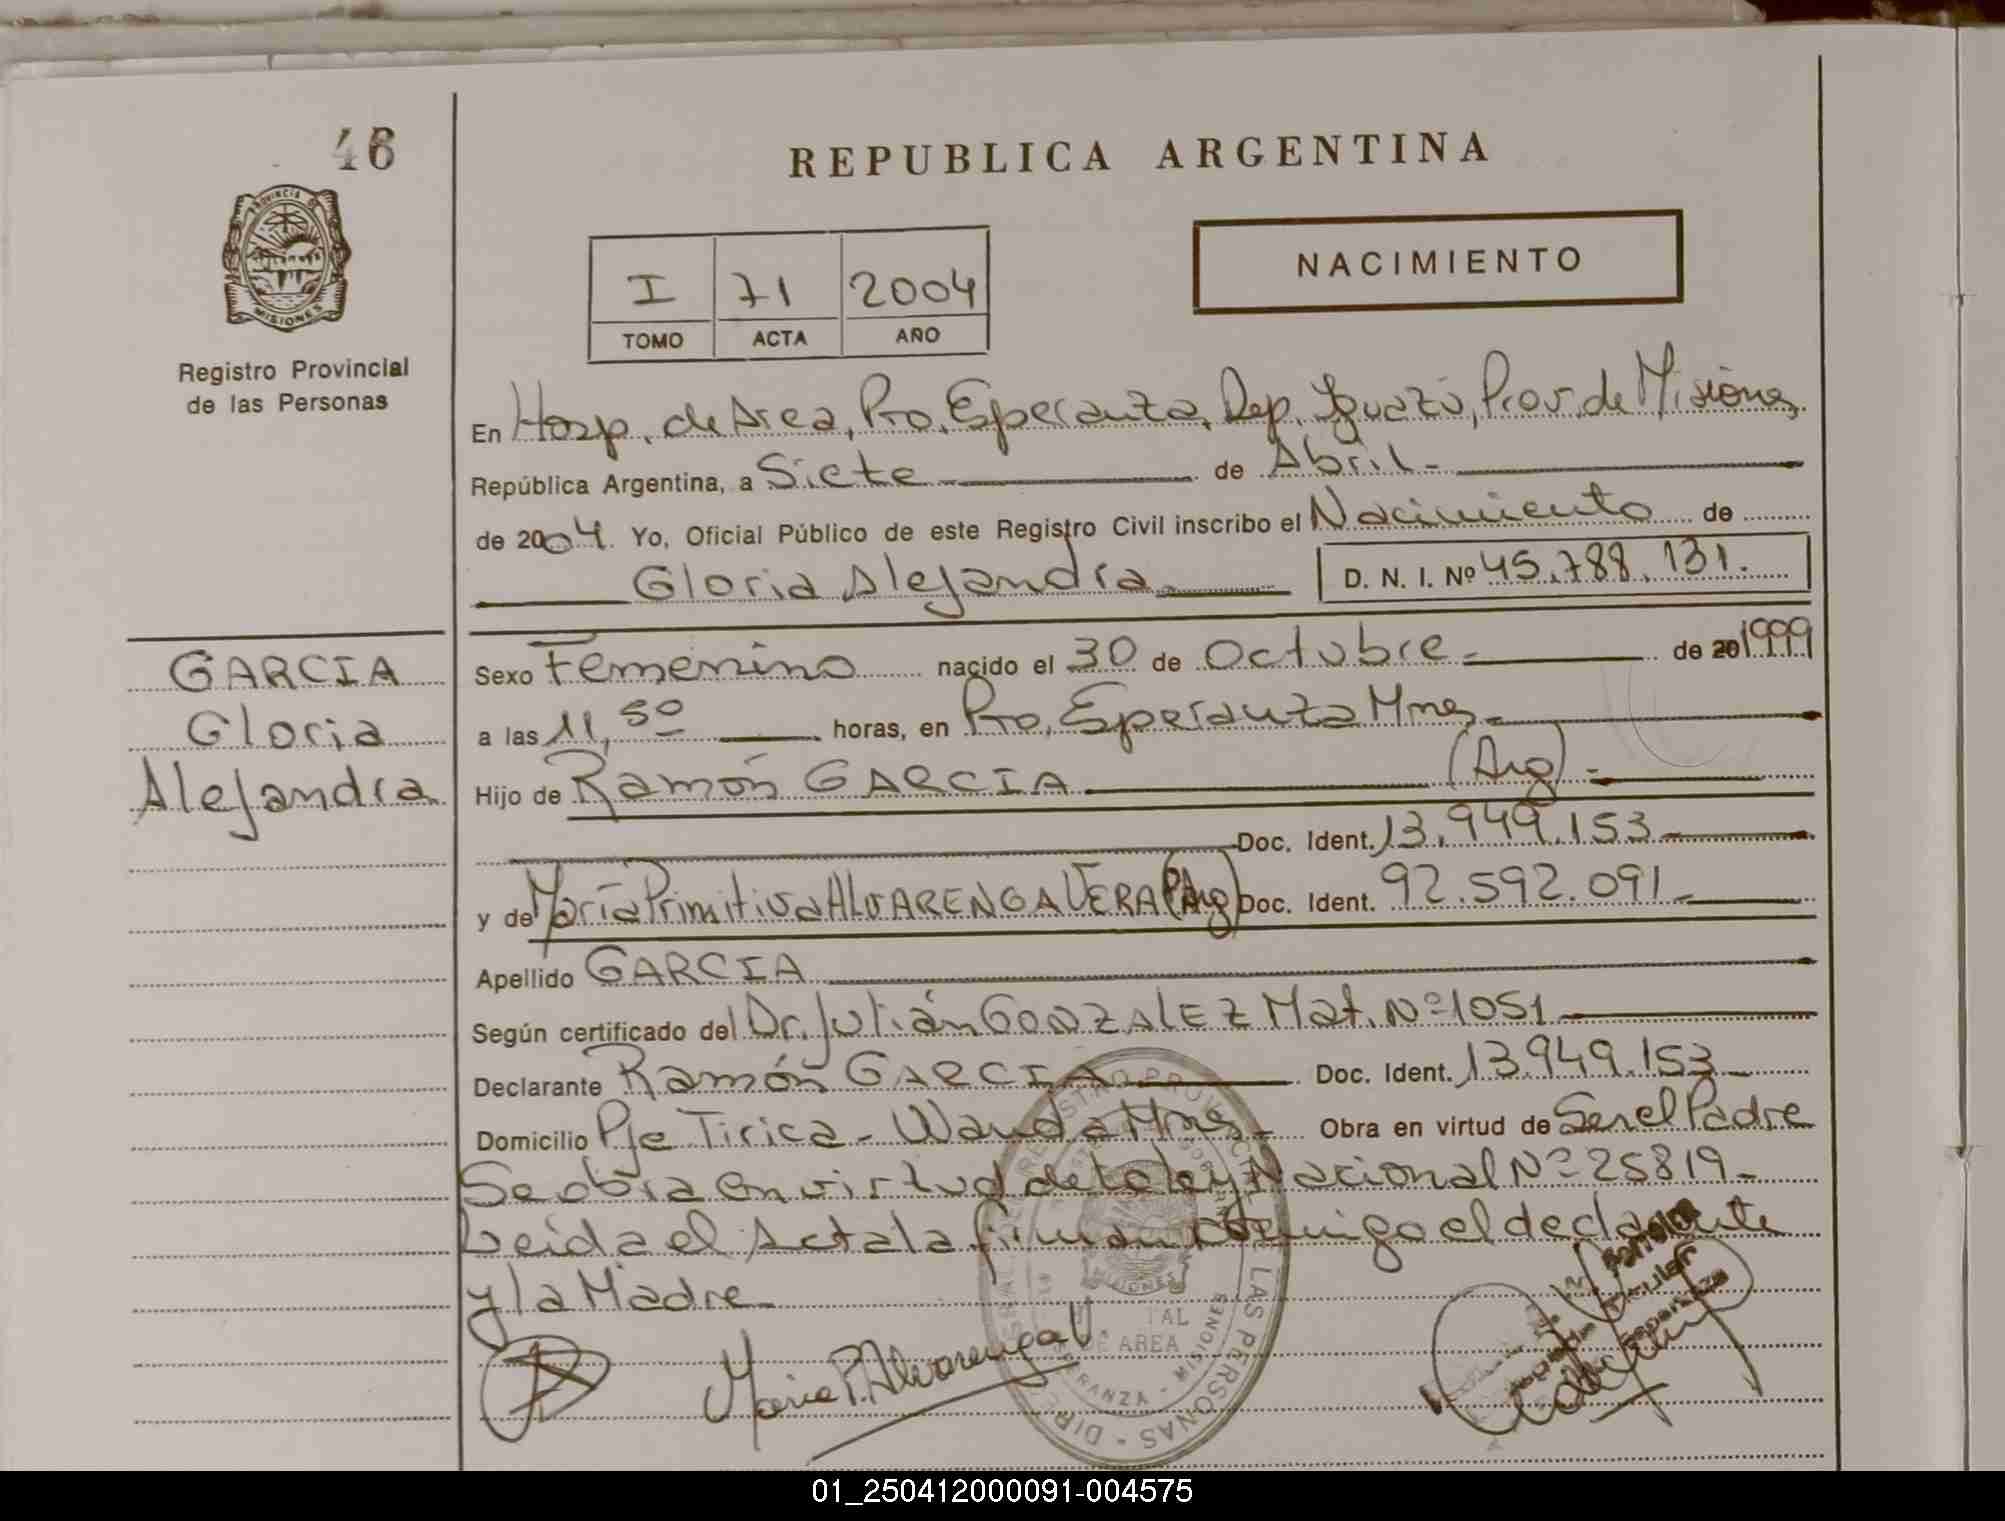 46
REPUBLICA ARGENTINA
PROVINCIA DE
MISIONES
Registro Provincial
de las Personas
I 71 2004
TOMO ACTA AÑO
NACIMIENTO
En Hosp. de Area, Pto. Esperanza, Dep. Iguazú, Prov. de Misiones
República Argentina, a Siete de Abril.
de 2004. Yo, Oficial Público de este Registro Civil inscribo el Nacimiento de
Gloria Alejandra D. N. I. Nº 45.788.131.
GARCIA
Gloria
Alejandra
Sexo Femenino nacido el 30 de Octubre de 20 1999
a las 11,50 horas, en Pto. Esperanza Mnes.
Hijo de Ramón GARCIA (Arg)
Doc. Ident. 13.949.153
y de María Primitiva ALVARENGA VERA Doc. Ident. 92.592.091
Apellido GARCIA
Según certificado del Dr. Julián GONZALEZ Mat. Nº 1051
Declarante Ramón GARCIA Doc. Ident. 13.949.153
Domicilio Pje Tirica - Wanda Mnes. Obra en virtud de Ser el Padre
Se obra en virtud de la ley Nacional Nº 25819
Leida el Acta la firman conmigo el declarante
y la Madre
Maria P. Alvarenga V.
DE AREA
MISIONES
LAS PERSONAS
01_250412000091-004575